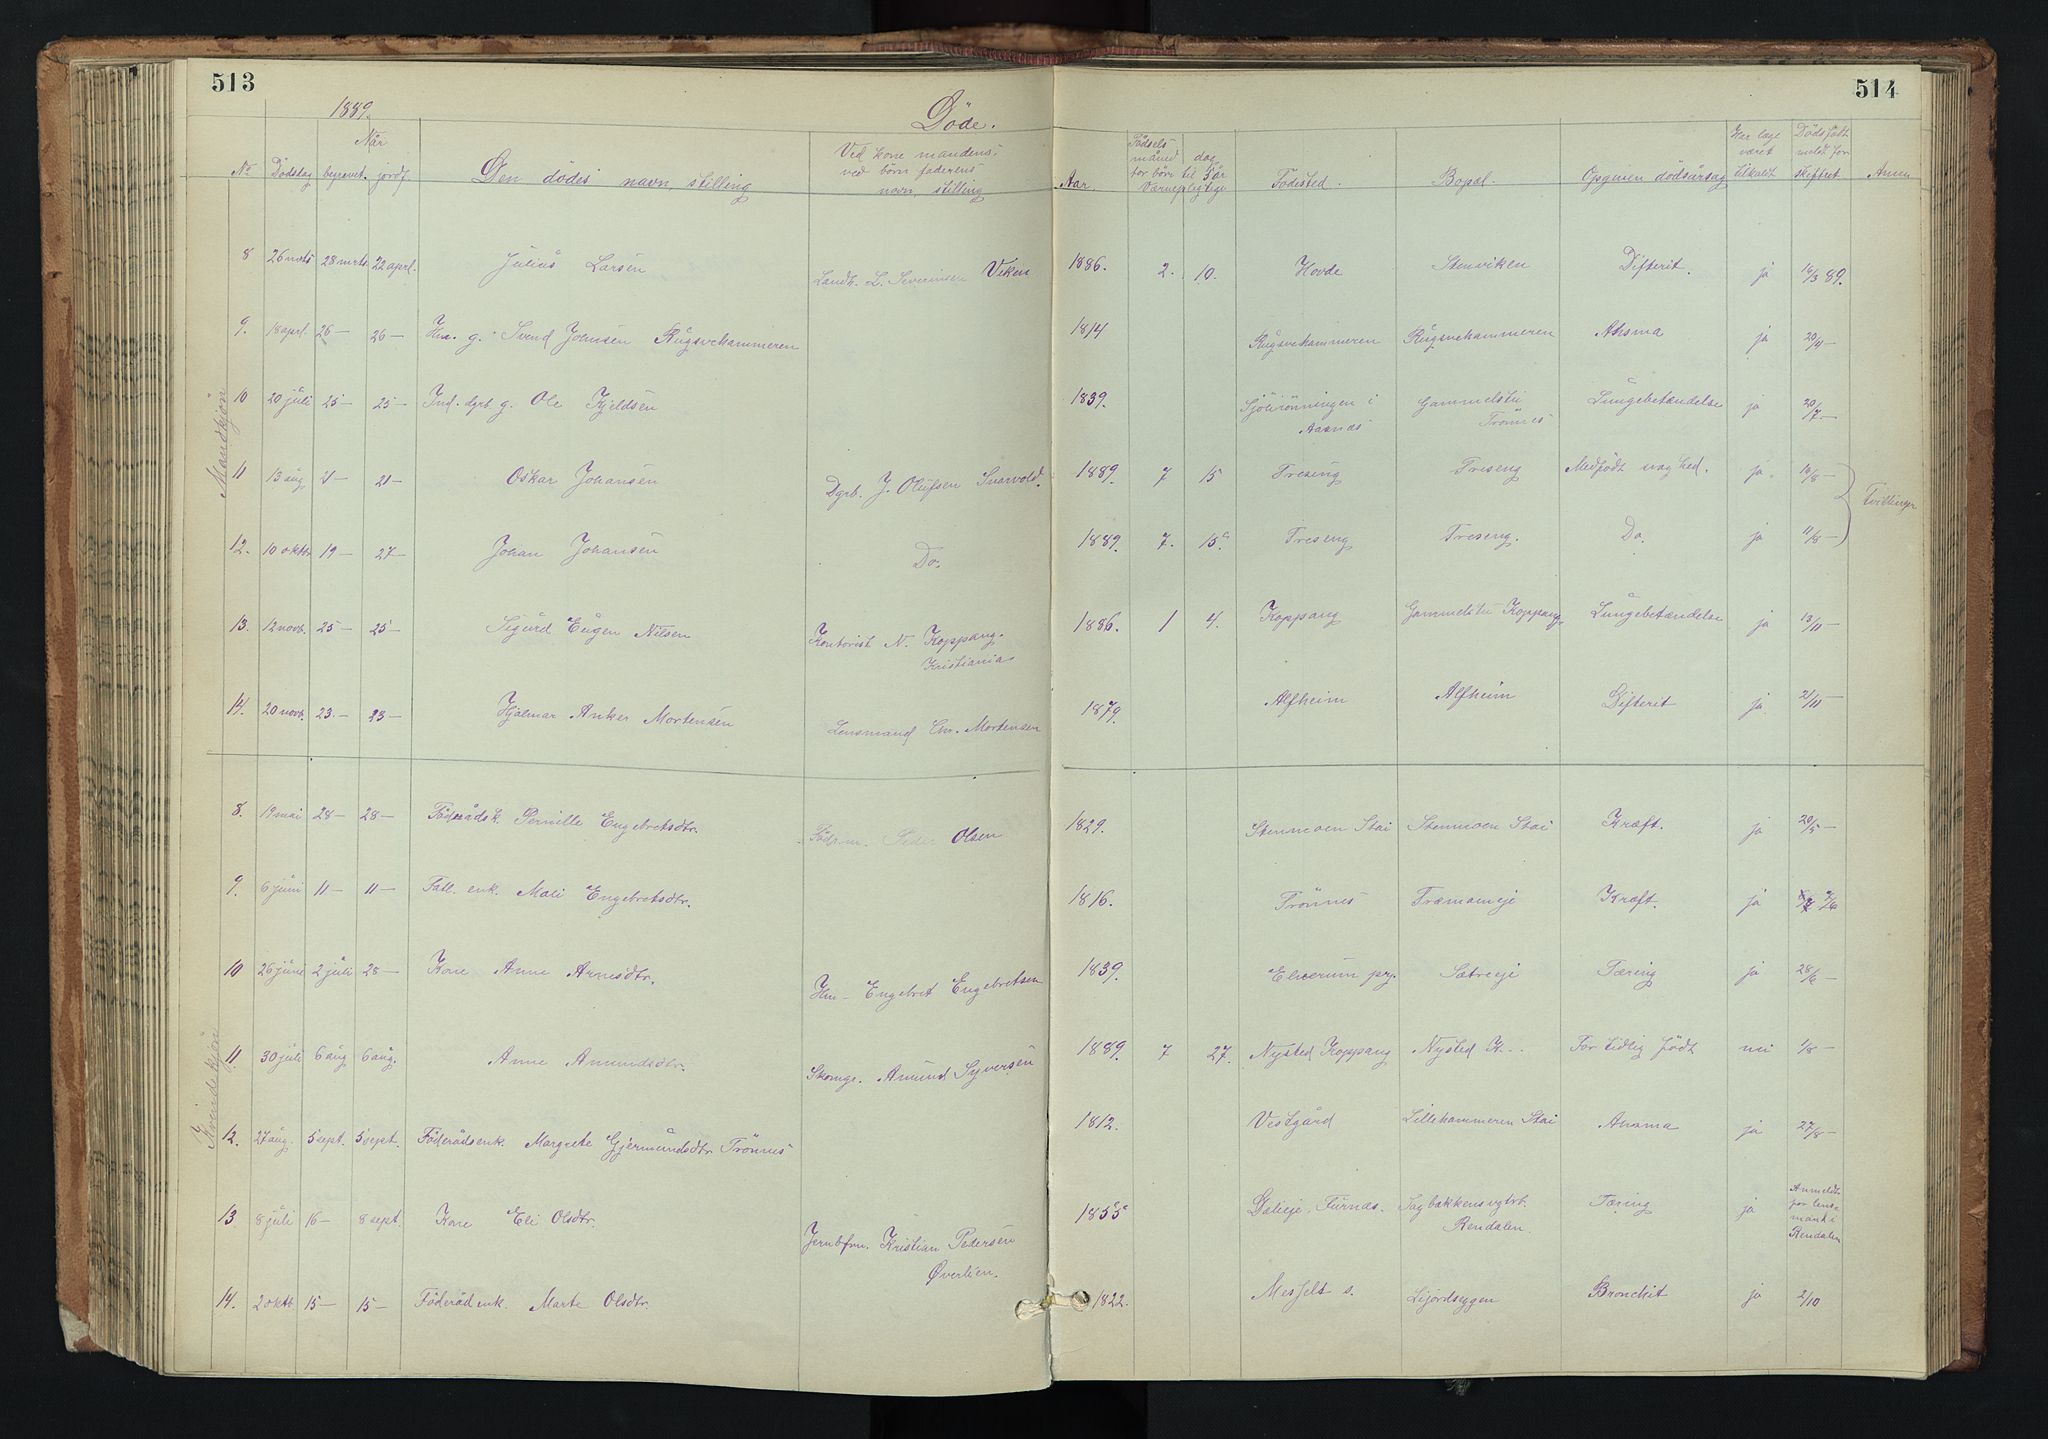 513
514
1889.
Döde.
No Dödsdag Når begravet. jordf. Den dödes navn, stilling Ved kone mandens, ved börn faderens navn, stilling Aar. Fødsels måned dag for börn til 5 år Værnepligtige Födested. Bopæl. Opgiven dödsårsag Har læge været tilkaldt Dödsfaldt meldt for skiftret. Anm
Mandkjön
8 26 mrts 28 mrts. 22 aprl. Julius Larsen Landh. L. Severinsen Viken 1886. 2. 10. Hovde Stenviken Difterit. ja 16/3 89.
9. 18 aprl. 26 — 26 — Hm. g. Svend Johnsen Rugsvehammeren 1814 Rugsvehammeren Rugsvehammeren Ahsma ja 20/4 —
10 20 juli 25 — 25 — Ind. dgrb g. Ole Kjeldsen 1839. Sjölirönningen i Aasnæs Gammelstu Trönnes Lungebetændelse ja 20/7 —
11 13 aug 21 — 21 — Oskar Johansen Dgrb. J. Olufsen Svarvold. 1889. 7 15 Treseng Treseng Medfödt svaghed. ja. 14/8 —
Tvillinger
12. 10 oktbr 19 — 27 — Johan Johansen Do. 1889. 7. 15. Treseng Treseng. Do. ja 11/8 —
13. 12 novb. 25 — 25 — Sigurd Eugen Nilsen Kontorist N. Koppang. Kristiania 1886. 1 4. Koppang Gammelstu Koppang Lungebetændelse ja 13/11 —
14. 20 novb. 23. — 23 — Hjalmar Anker Mortensen Lensmand Chr. Mortensen 1879. Alfheim Alfheim Difterit ja. 21/11 —
Kvindekjön
8. 19 mai 28 — 28 — Föderådsk. Pernille Engebretsdtr. Födrm. Peder Olsen 1829. Stenmoen Stai Stenmoen Stai Kræft. ja 20/5 —
9. 6 juni 11 — 11 — Fatl. enk. Mali Engebretsdtr. 1816. Trönnes Træmoeneje Kræft. ja 7/6
10 26 juni 2 juli 28 — Kone Anne Arnesdtr. Hm — Engebret Engebretsen 1839. Elverum prg. Sætreeje Tæring ja 28/6 —
11 30 juli 6 aug 6 aug. Anne Amundsdtr. Skomgr. Amund Syversen 1889. 7 27. Nysted Koppang Nysted K — For tidlig födt nei 1/8 —
12. 27 aug. 5 sept. 5 sept. Föderådsenk. Margrete Gjermundsdtr Trönnes 1812. Vestgård Lillehammeren Stai Ahsma ja 27/8 —
13 8 juli 16 — 8 sept. Kone Eli Olsdtr. Jernbfm. Kristian Pedersen Øverlien. 1855 Dalieje, Furnæs. Sagbakkensvgtrb. Rendalen Tæring ja Anmeldt for lensmank i Rendalen
14. 2 oktb 15 — 15 — Föderådenk. Marte Olsdtr. 1822. Messelt s. Lijordseggen Bronchit ja 2/10